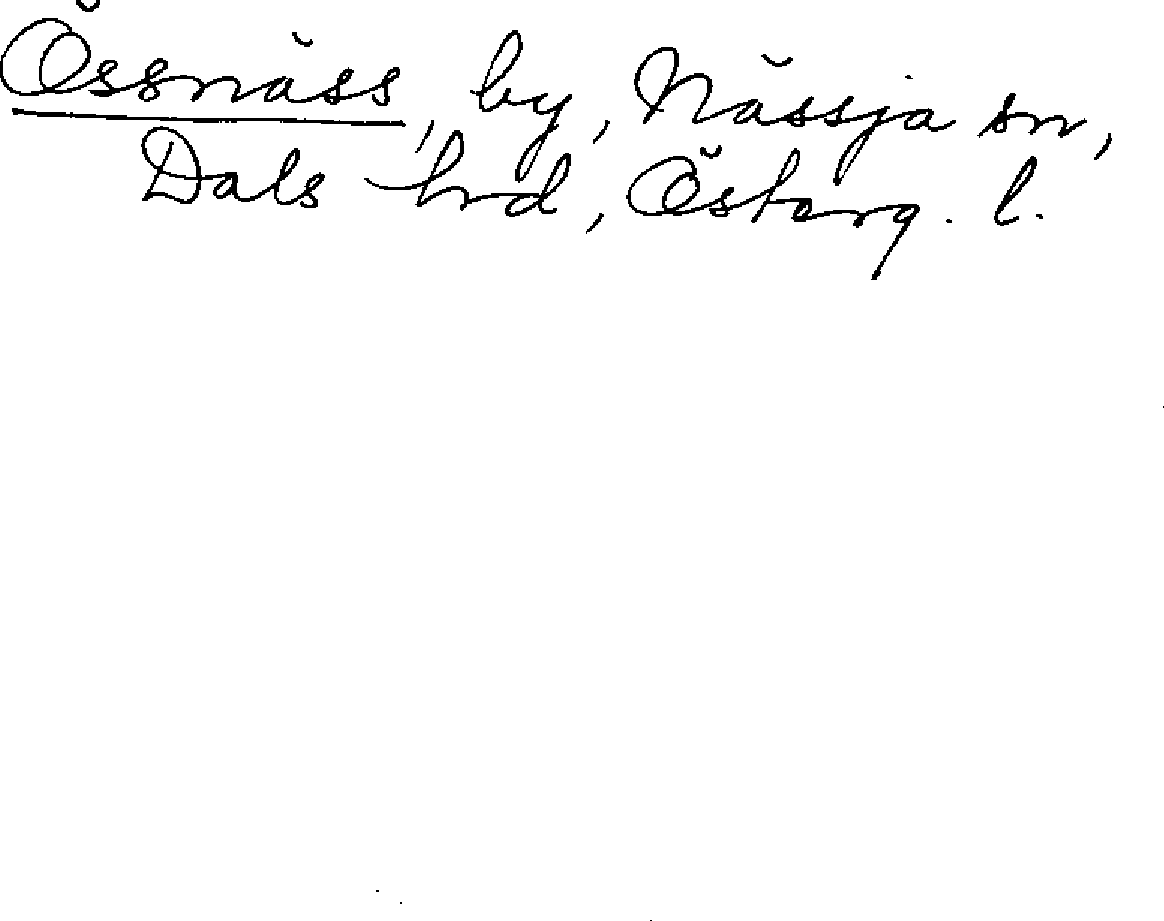 Össnäss, by, Nässja sn,
Dals hrd, Österg. l.